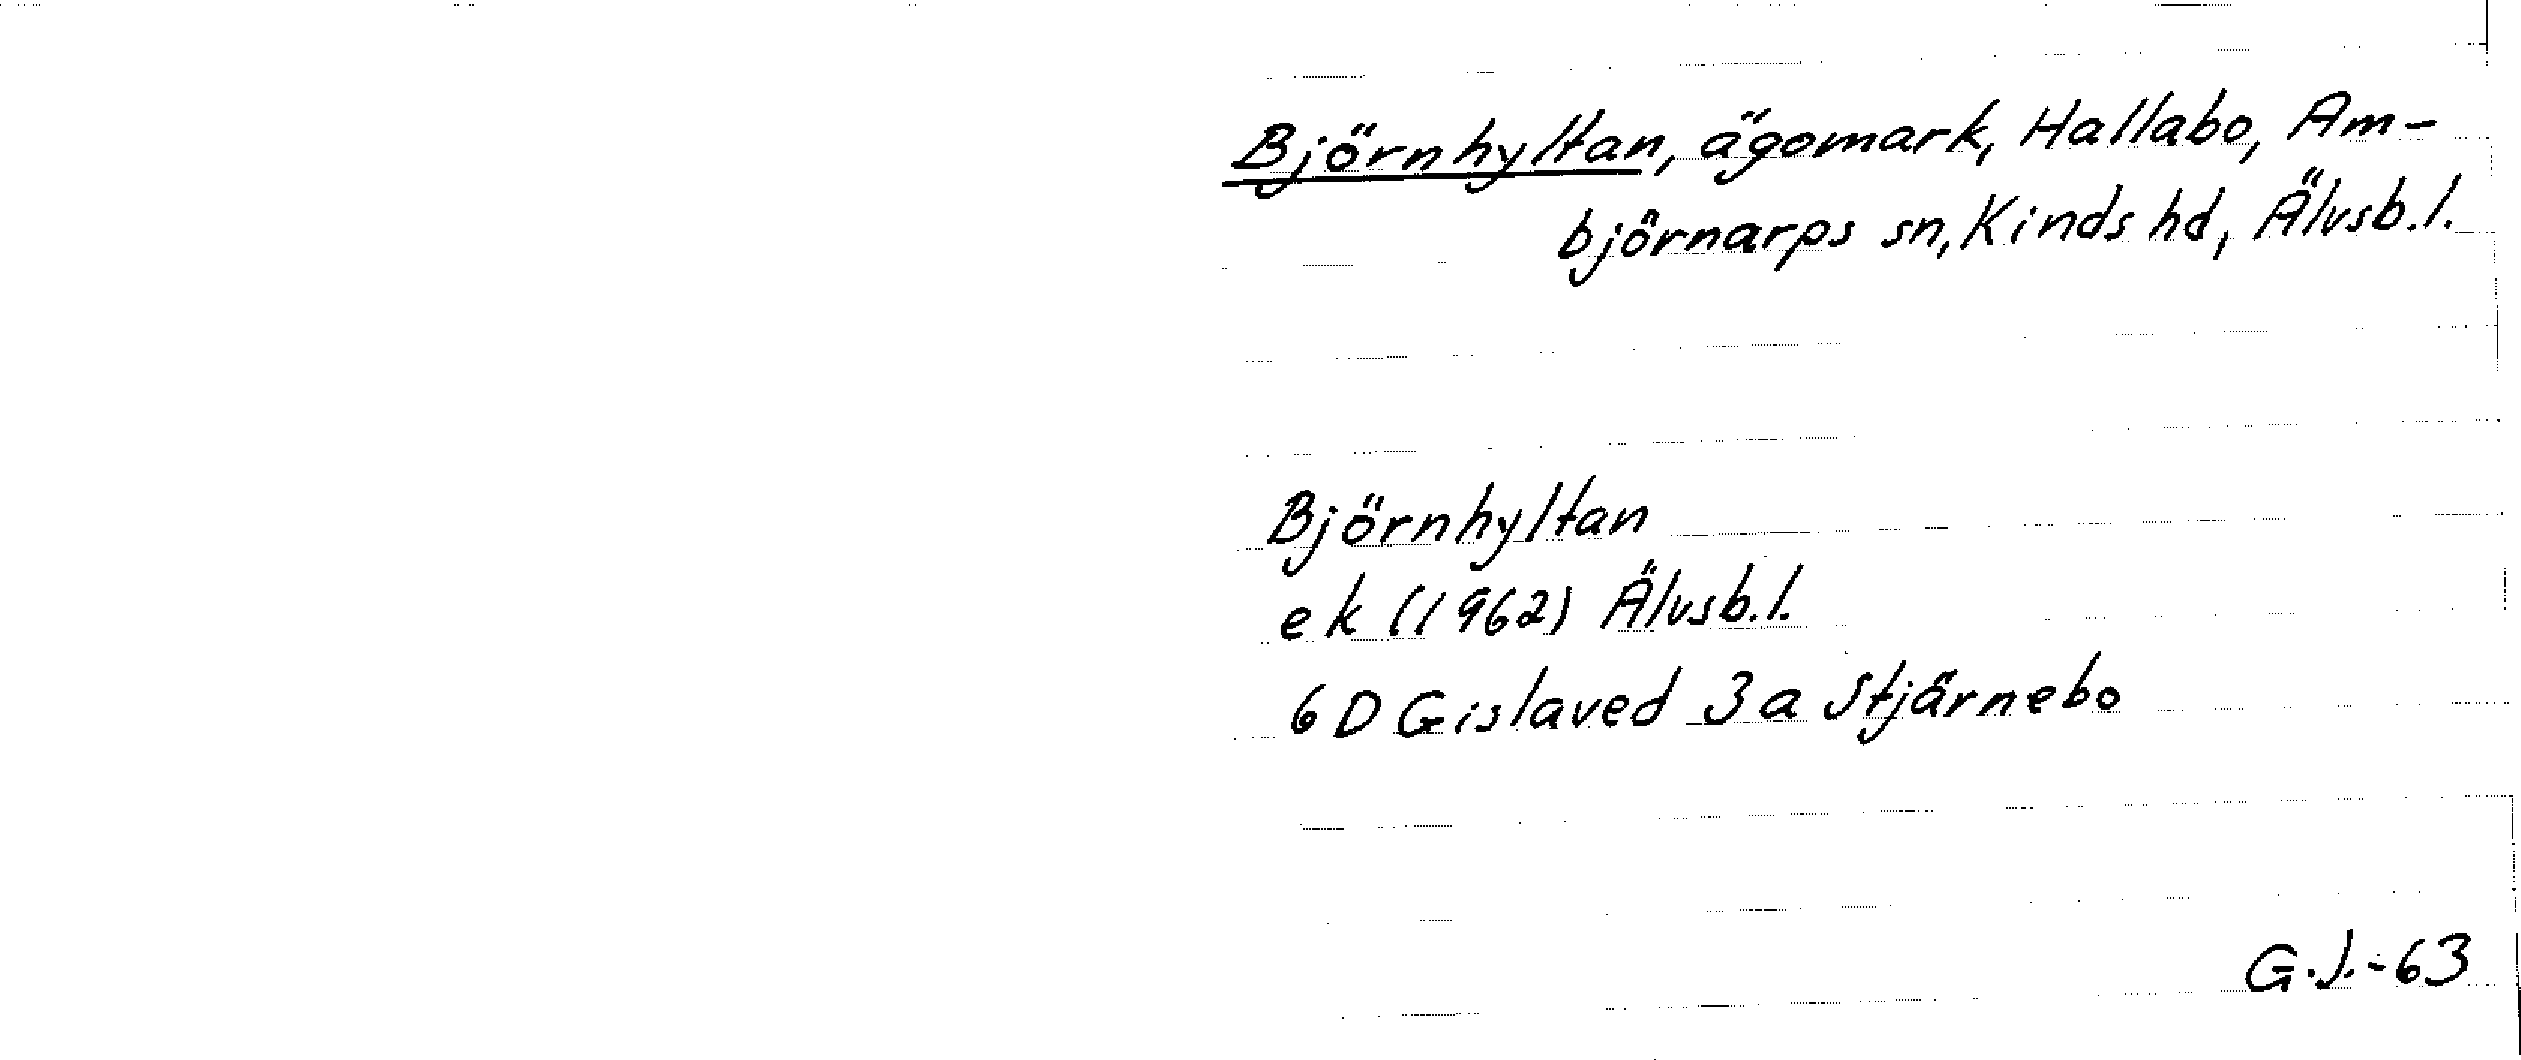 Björnhyltan, ägomark, Hallabo, Am-
björnarps sn, Kinds hd, Älvsb.l.
Björnhyltan
ek (1962) Älvsb.l.
6 D Gislaved 3a Stjärnebo
G.J.-63